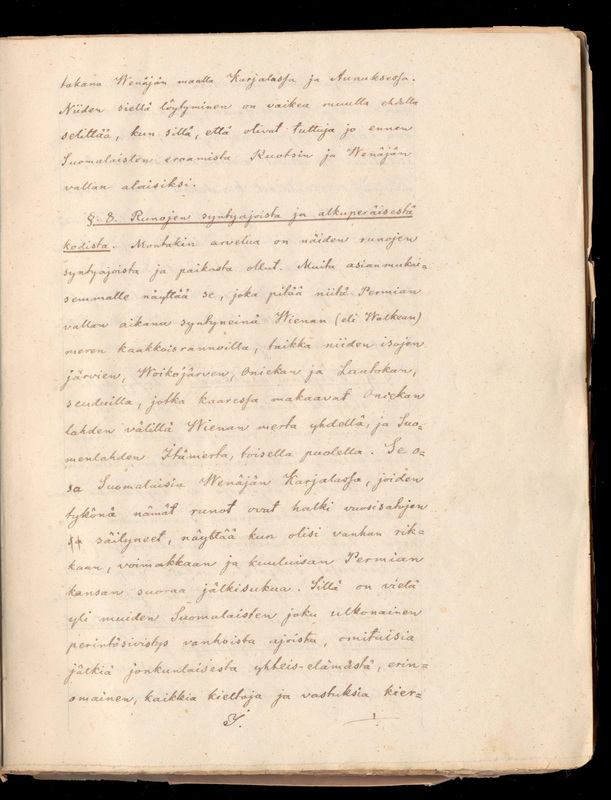 takana Wenäjän maalla Karjalassa ja Aunuksessa.
Niiden siellä löytyminen on vaikea muulla ehdolla
selittää, kun sillä, että olivat tuttuja jo ennen
Suomalaisten eroamista Ruotsin ja Wenäjän
vallan alaisiksi.
§. 8. Runojen syntyajoista ja alkuperäisestä
kodista. Montakin arvelua on näiden runojen
syntyajoista ja paikasta ollut. Muita asianmukai=
semmalle näyttää se, joka pitää niitä Permian
vallan aikana syntyneinä Wienan (eli Walkean)
meren kaakkoisrannoilla, taikka niiden isojen
järvien, Woikojärven, Oniekan ja Laatokan,
seuduilla, jotka kaaressa makaavat Oniekan
lahden välillä Wienan merta yhdellä, ja Suo=
menlahden Itämerta, toisella puolella. Se o=
sa Suomalaisia Wenäjän Karjalassa, joiden
tykönä nämät runot ovat halki vuosisatojen
säilyneet, näyttää kun olisi vanhan rik=
kaan, voimakkaan ja kuuluisan Permian
kansan suoraa jälkisukua. Sillä on vielä
yli muiden Suomalaisten joku ulkonainen
perintösivistys vanhoista ajoista, omituisia
jälkiä jonkunlaisesta yhteis-elämästä, erin=
omainen, kaikkia kieltoja ja vastuksia kier=